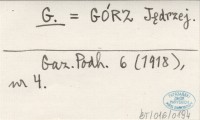 G. = GÓRZ Jędrzej.
Gaz. Podh. 6 (1918),
nr 4.
bT/016/0194